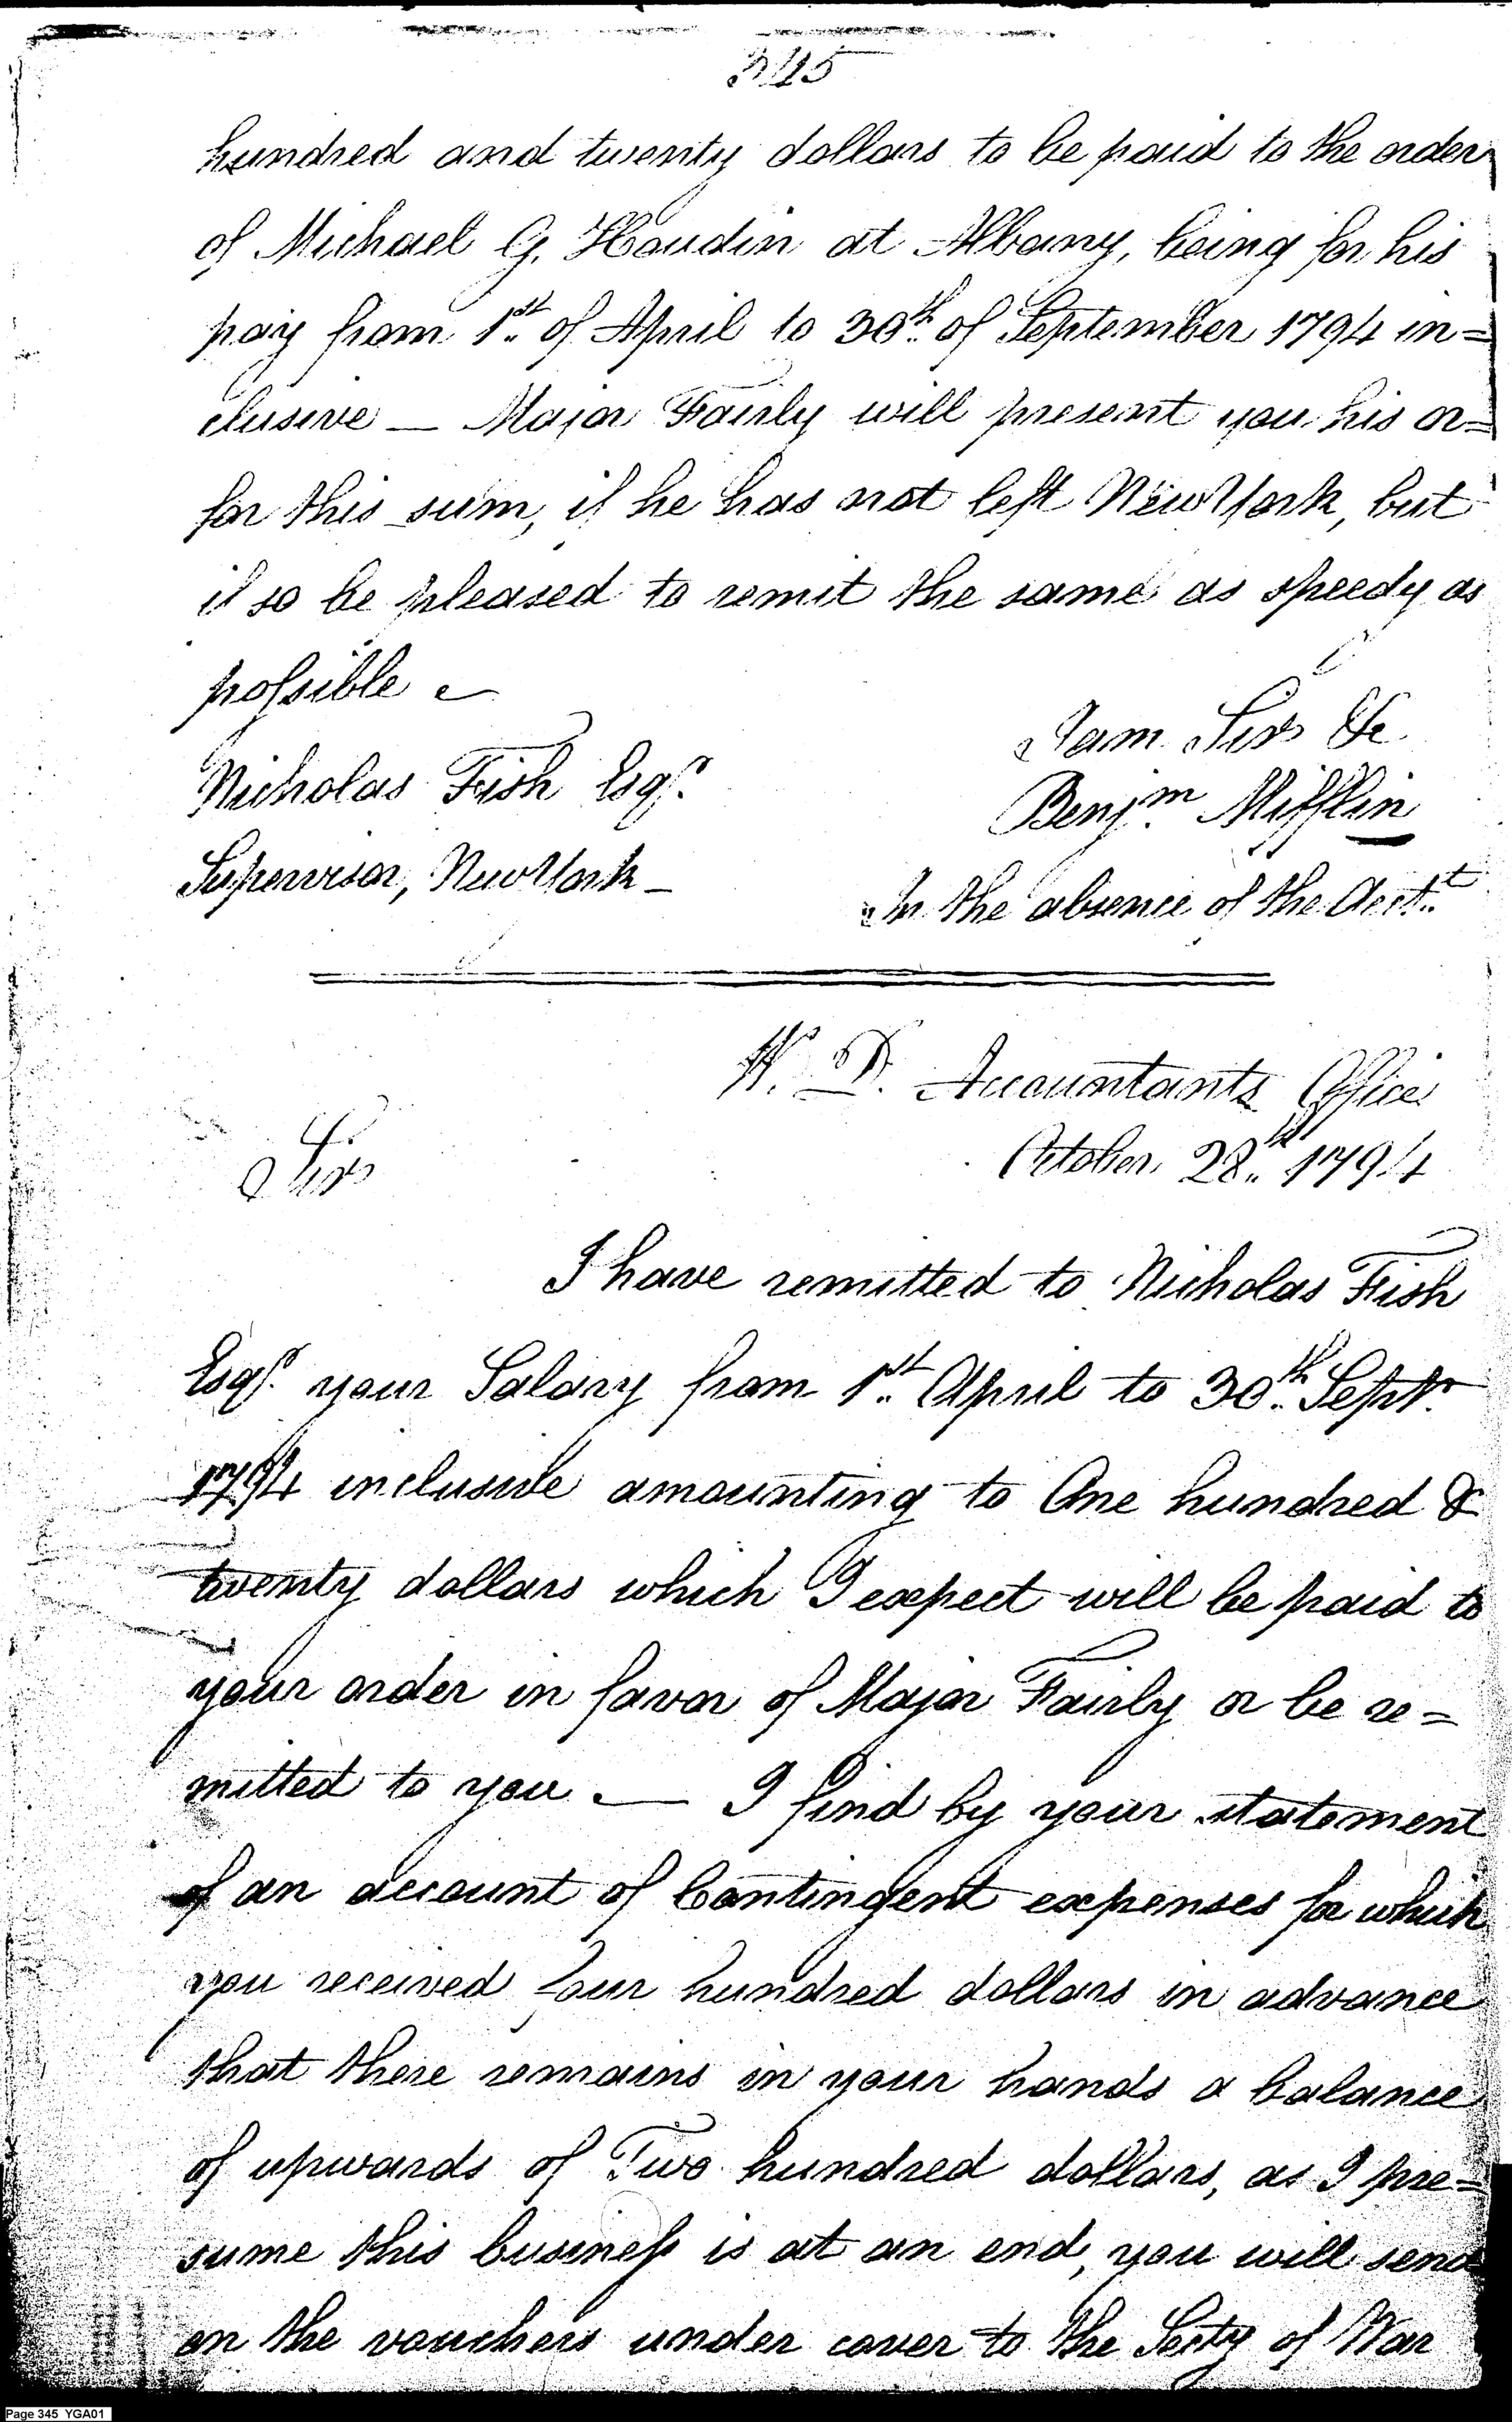 345
hundred and twenty dollars to be paid to the order
of Michael G. Houdin at Albany, being for his
pay from 1st. of April to 30th. of September 1794 in=
clusive — Major Fairly will present you his or=
for this sum, if he has not left NewYork, but
if so be pleased to remit the same as speedy as
possible
I am Sir &c
Nicholas Fish Esqr.
Benjm. Mifflin
Supervisor, NewYork —
In the absence of the Acctt.
W. D. Accountants Office
October 28th. 1794
Sir
I have remitted to Nicholas Fish
Esqr. your Salary from 1st. April to 30th. Septr.
1794 inclusive amounting to One hundred &
twenty dollars which I expect will be paid to
your order in favor of Major Fairly or be re=
mitted to you — I find by your statement
of an account of Contingent expenses for which
you received four hundred dollars in advance
that there remains in your hands a balance
of upwards of Two hundred dollars, as I pre=
sume this business is at an end, you will send
on the vouchers under cover to the Secty of War
Page 345 YGA01